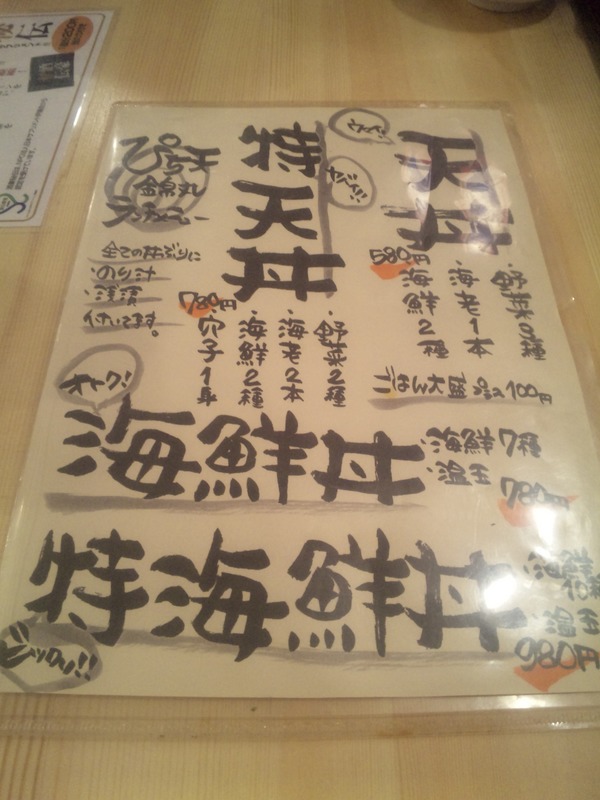 天丼
580円
・野菜3種
・海老1本
・海鮮2種
ごはん大盛 プラス100円
ヤバイ!!
特天丼
780円
・野菜2種
・海老2本
・海鮮2種
・穴子1身
ぴち天
金魚丸
ランチメニュー
全ての丼ぶりに
・のり汁
・浅漬
付いてます。
オトク!
海鮮丼
・海鮮7種
・温玉
780円
特海鮮丼
・海鮮
・温玉
980円
ビックリ!!
伝